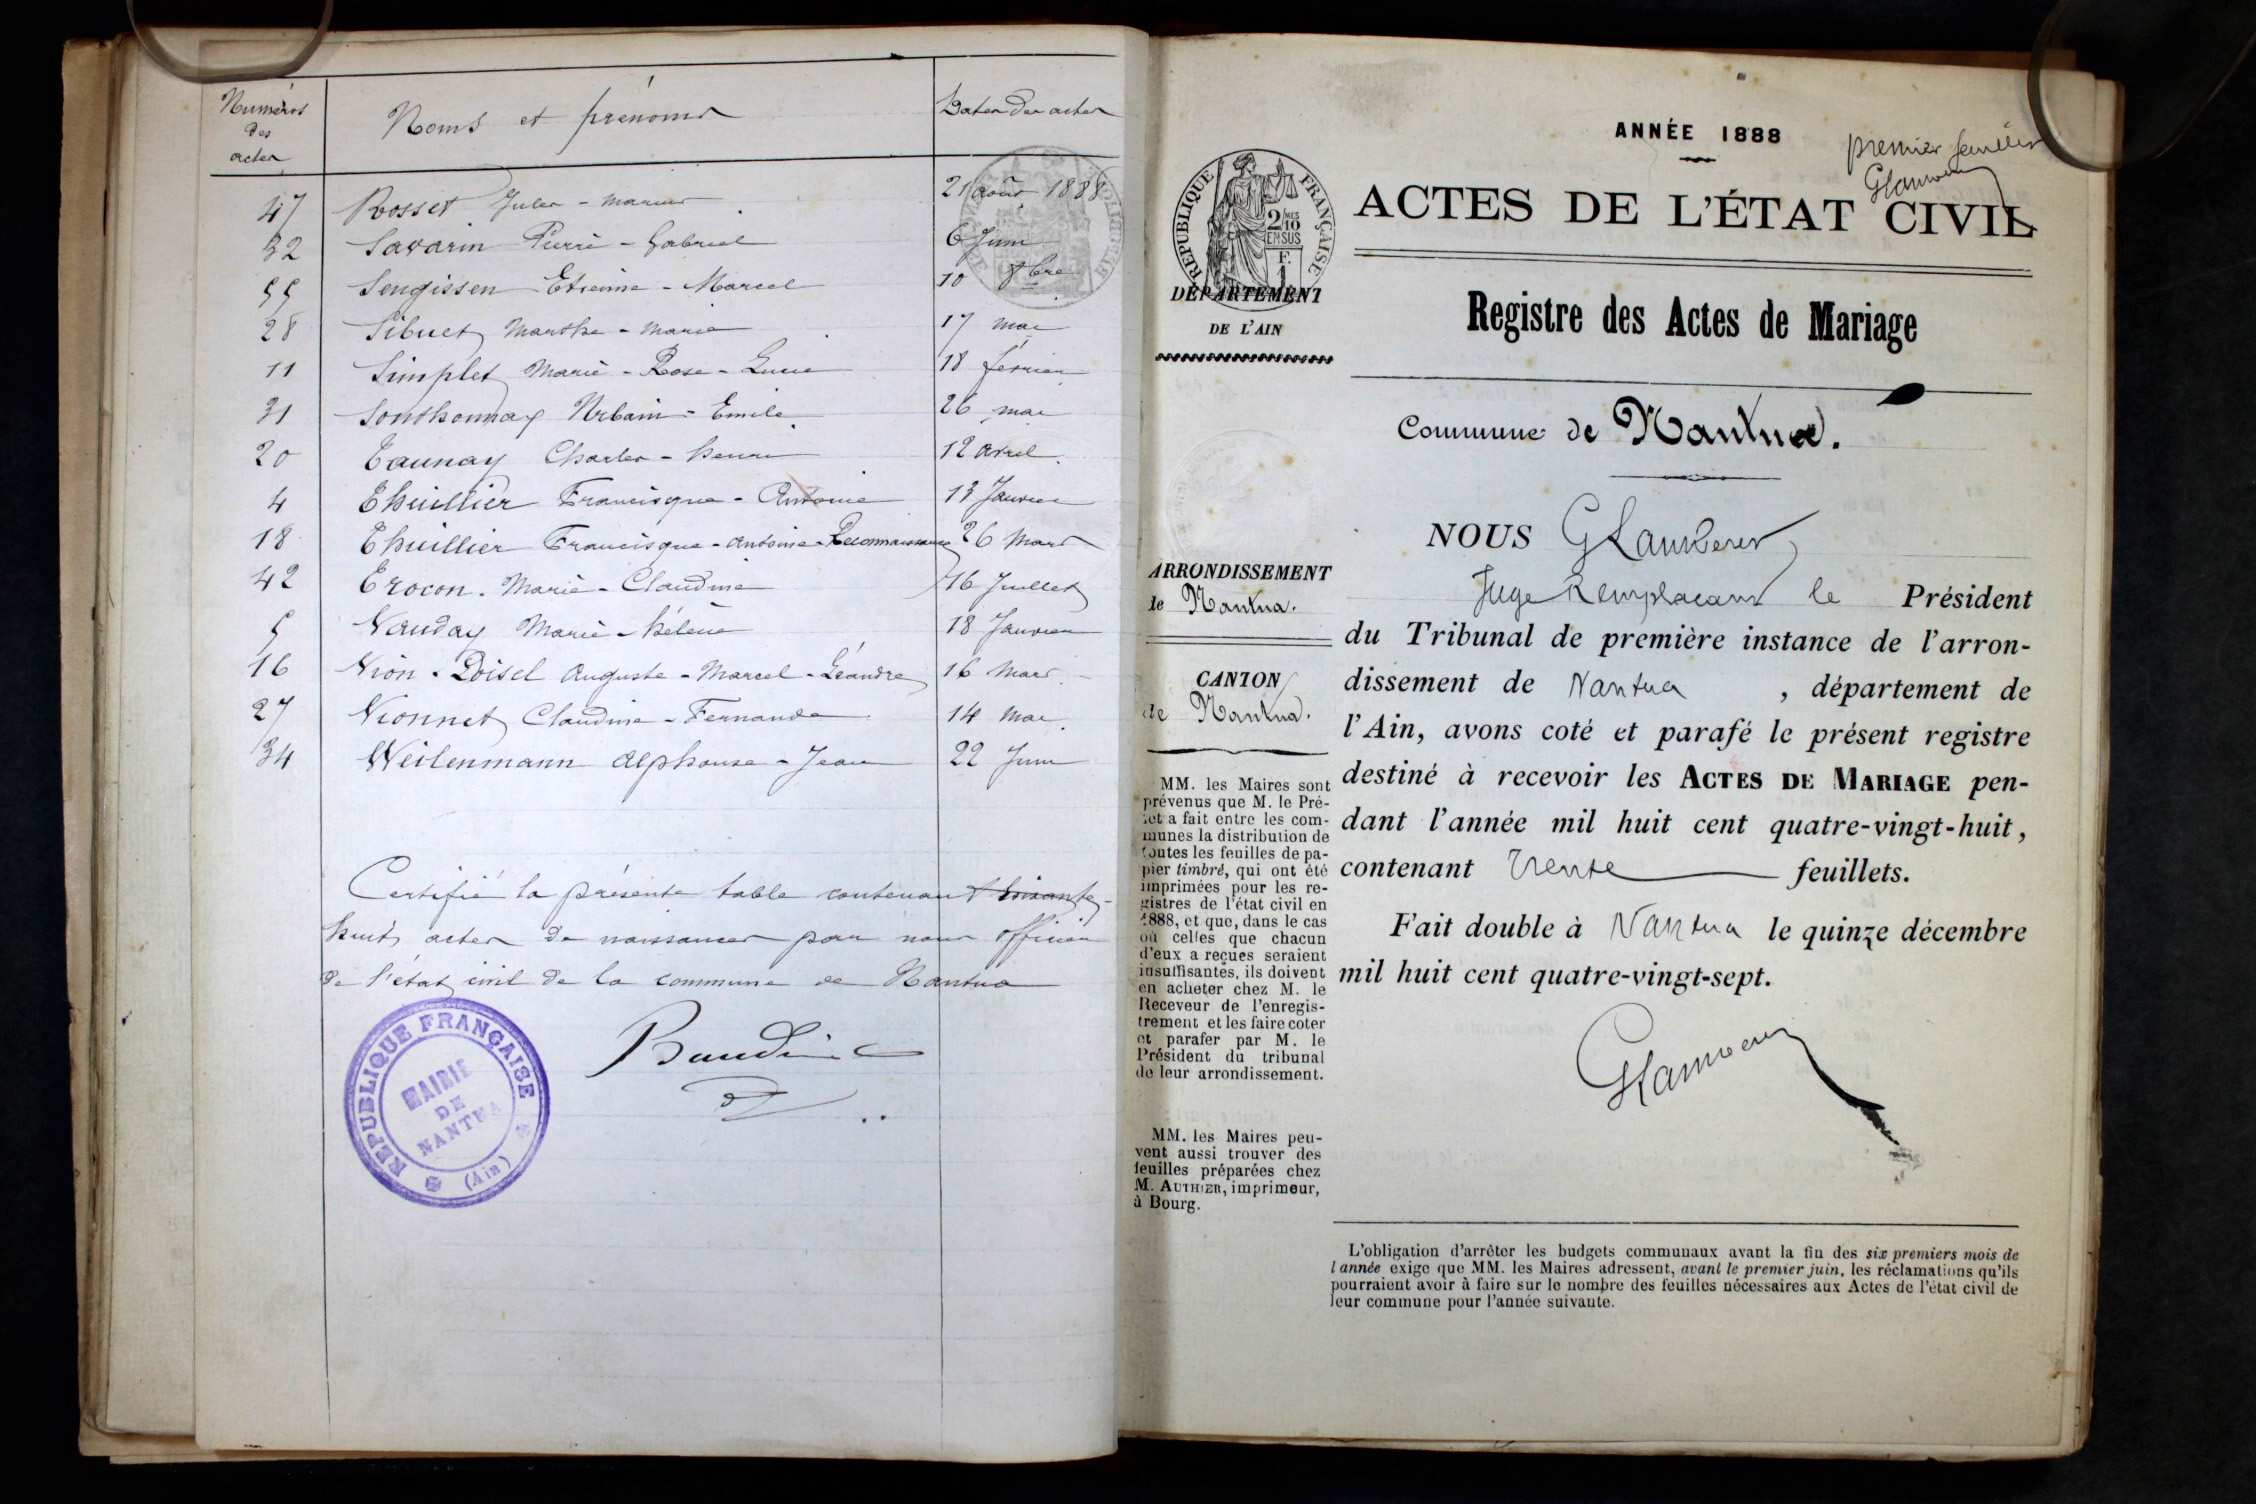 Numéros des actes
Noms et prénoms
Dates des actes
47 Rosset Jules - Marius 21 août 1888
32 Savarin Pierre - Gabriel 6 Juin
55 Sengissen Etienne - Marcel 10 8bre
28 Sibuet Marthe - Marie 17 mai
11 Simplet Marie - Rose - Lucie 18 février
31 Sonthonnax Urbain - Emile 26 mai
20 Taunay Charles - henri 12 avril
4 Thuillier Francisque - Antoine 13 Janvier
18 Thuillier Francisque - Antoine - Reconnaissance 26 Mars
42 Trocon. Marie - Claudine 16 Juillet
5 Vauday Marie - hélène 18 Janvier
16 Vion - Loisel Auguste - Marcel - Léandre 16 Mars
27 Vionnet Claudine - Fernande 14 Mai
34 Weilenmann Alphonse - Jean 22 Juin
Certifié la présente table contenant soixante-
huit actes de naissances par nous officier
de l'état civil de la commune de Nantua
Baudin
REPUBLIQUE FRANÇAISE
MAIRIE
DE
NANTUA
(Ain)
ANNÉE 1888
premier feuillet
ACTES DE L'ÉTAT CIVIL
RÉPUBLIQUE FRANÇAISE
2/10
EN SUS
F.
1
DÉPARTEMENT
DE L'AIN
Registre des Actes de Mariage
Commune de Nantua.
ARRONDISSEMENT
de Nantua.
CANTON
de Nantua.
MM. les Maires sont
prévenus que M. le Pré-
fet a fait entre les com-
munes la distribution de
toutes les feuilles de pa-
pier timbré, qui ont été
imprimées pour les re-
gistres de l'état civil en
1888, et que, dans le cas
où celles que chacun
d'eux a reçues seraient
insuffisantes, ils doivent
en acheter chez M. le
Receveur de l'enregis-
trement et les faire coter
et parafer par M. le
Président du tribunal
de leur arrondissement.
MM. les Maires peu-
vent aussi trouver des
feuilles préparées chez
M. AUTHIER, imprimeur,
à Bourg.
NOUS
Juge Remplacant le Président
du Tribunal de première instance de l'arron-
dissement de Nantua , département de
l'Ain, avons coté et parafé le présent registre
destiné à recevoir les ACTES DE MARIAGE pen-
dant l'année mil huit cent quatre-vingt-huit,
contenant trente feuillets.
Fait double à Nantua le quinze décembre
mil huit cent quatre-vingt-sept.
L'obligation d'arrêter les budgets communaux avant la fin des six premiers mois de
l'année exige que MM. les Maires adressent, avant le premier juin, les réclamations qu'ils
pourraient avoir à faire sur le nombre des feuilles nécessaires aux Actes de l'état civil de
leur commune pour l'année suivante.